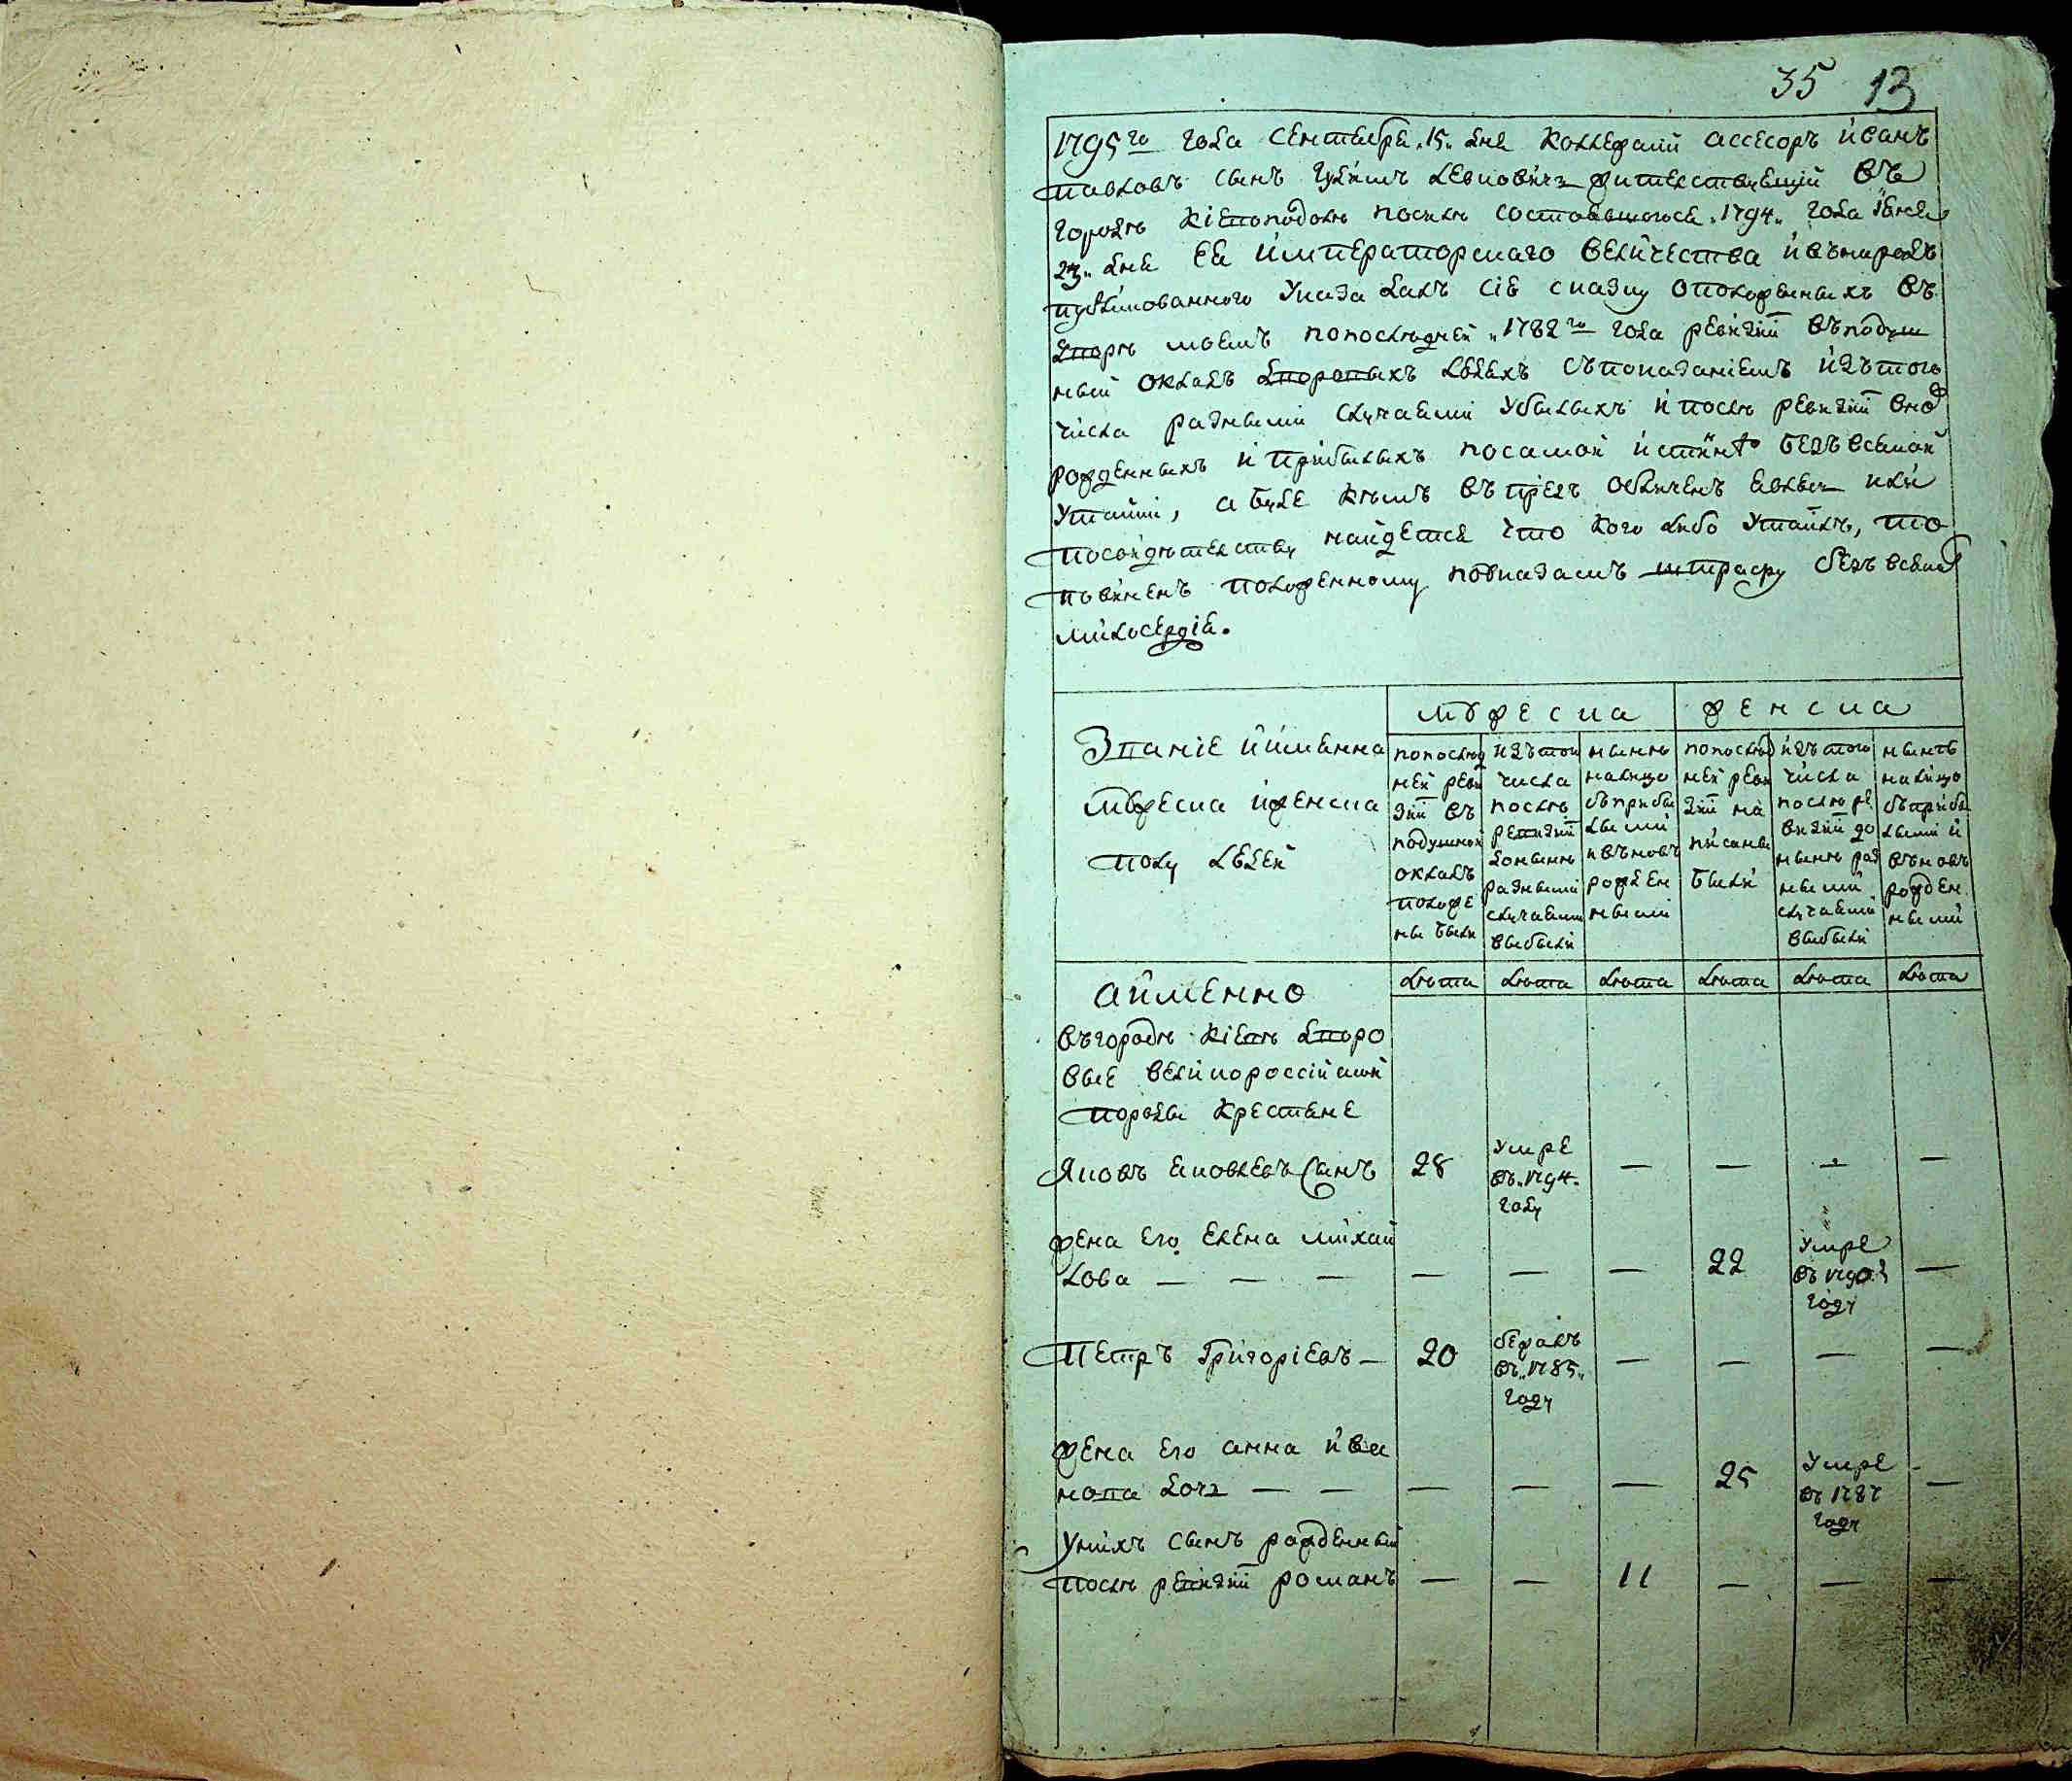 35 13
1795го года сентября „15„ дня коллежский ассесоръ иванъ
павловъ сынъ жительствующий въ
городѣ Кіевоподолѣ послѣ состоявшагося „1794„ года іюня
23„ дня ея императорскаго величества и въ народъ
публикованного указа далъ сію сказку о положенныхъ въ
дворѣ моемъ по последней „1782го года ревизии въ подуш
ный окладъ дворовыхъ людехъ съ показаніемъ изъ того
числа разными случаями убылыхъ и послѣ ревизии вно
рожденныхъ и прибылыхъ по самой истинѣ безъ всякой
утайки, а буде кѣмъ въ предь обличенъ явлюсь или
по свидѣтельству найдется что кого либо утаилъ, то
повиненъ положенному по указамъ штрафу безъ всякаго
милосердія.
Званіе и имянна
мужеска и женска
полу людей
мужеска
женска
по послѣд
ней реви
зии въ
подушной
окладъ
положе
ны были
изъ того
числа
послѣ
ревизии
до нынѣ
разными
случаями
выбыли
нынѣ
на лицо
съ прибы
лыми
и въновь
рожден
ными
по послѣд
ней реви
зии на
писаны
были
изъ того
числа
послѣ ре
визии до
нынѣ раз
ными
случаями
выбыли
нынѣ
на лицо
съ прибы
лыми и
въновь
рожден
ными
лѣта лѣта лѣта лѣта лѣта лѣта
а имЕнно
въ городѣ Кіевѣ дворо
вые великороссійской
породы крестяне
Яковъ яковлевъ сынъ 28 умре въ „1794„ году — — — —
жена его елена михай
лова — — — — — — 22 умре въ 1790м году —
Петръ Григоріевъ — 20 бежалъ въ „1785„ году — — — —
жена его анна ива
нова дочь — — — — — 25 умре въ 1787 году —
у нихъ сынъ рожденный
послѣ ревизии романъ — — 11 — — —